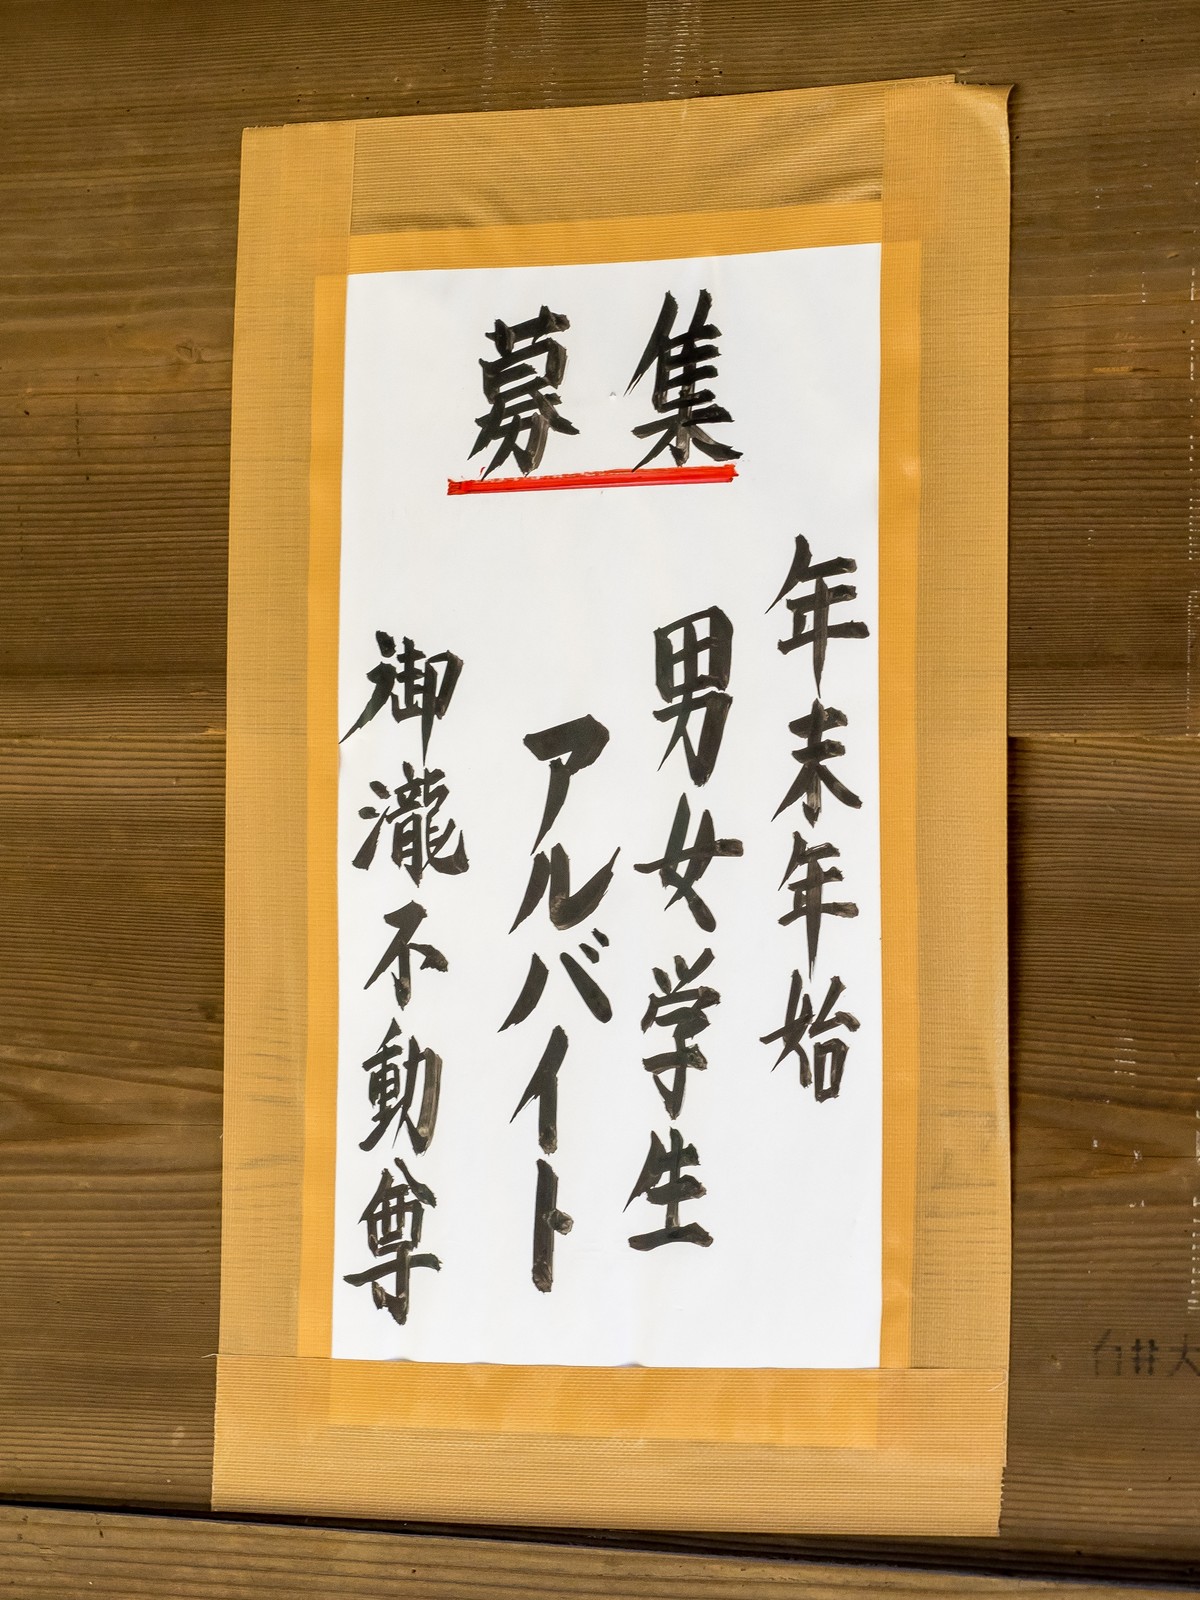 募集
年末年始
男女学生
アルバイト
御瀧不動尊